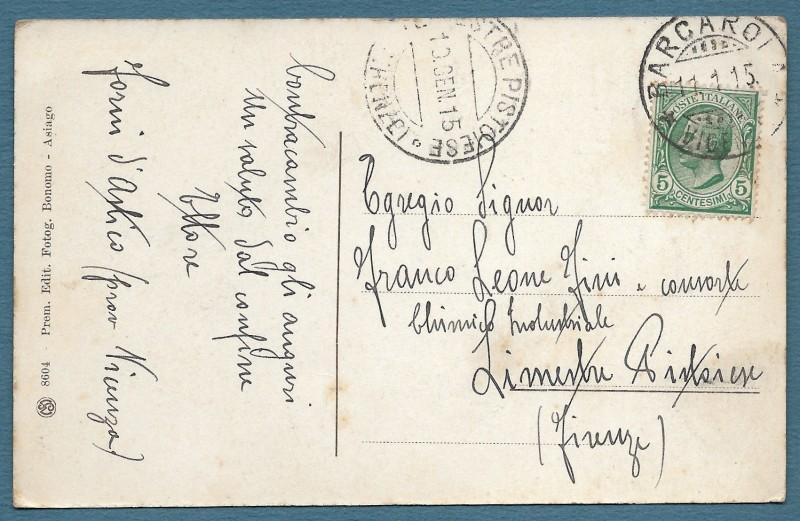 Contracambio gli auguri
Un saluto dal confine
Ettore
Forni d'Astico (prov Vicenza)
8604 - Prem. Edit. Fotog. Bonomo - Asiago
STRE PISTOIESE
(FIRENZE)
13.GEN.15
BARCAROLA
11.1.15
POSTE ITALIANE
5 5
CENTESIMI
Egregio Signor
Franco Leone Zini e consorte
Chimico Industriale
Limestre Pistoiese
(Firenze)